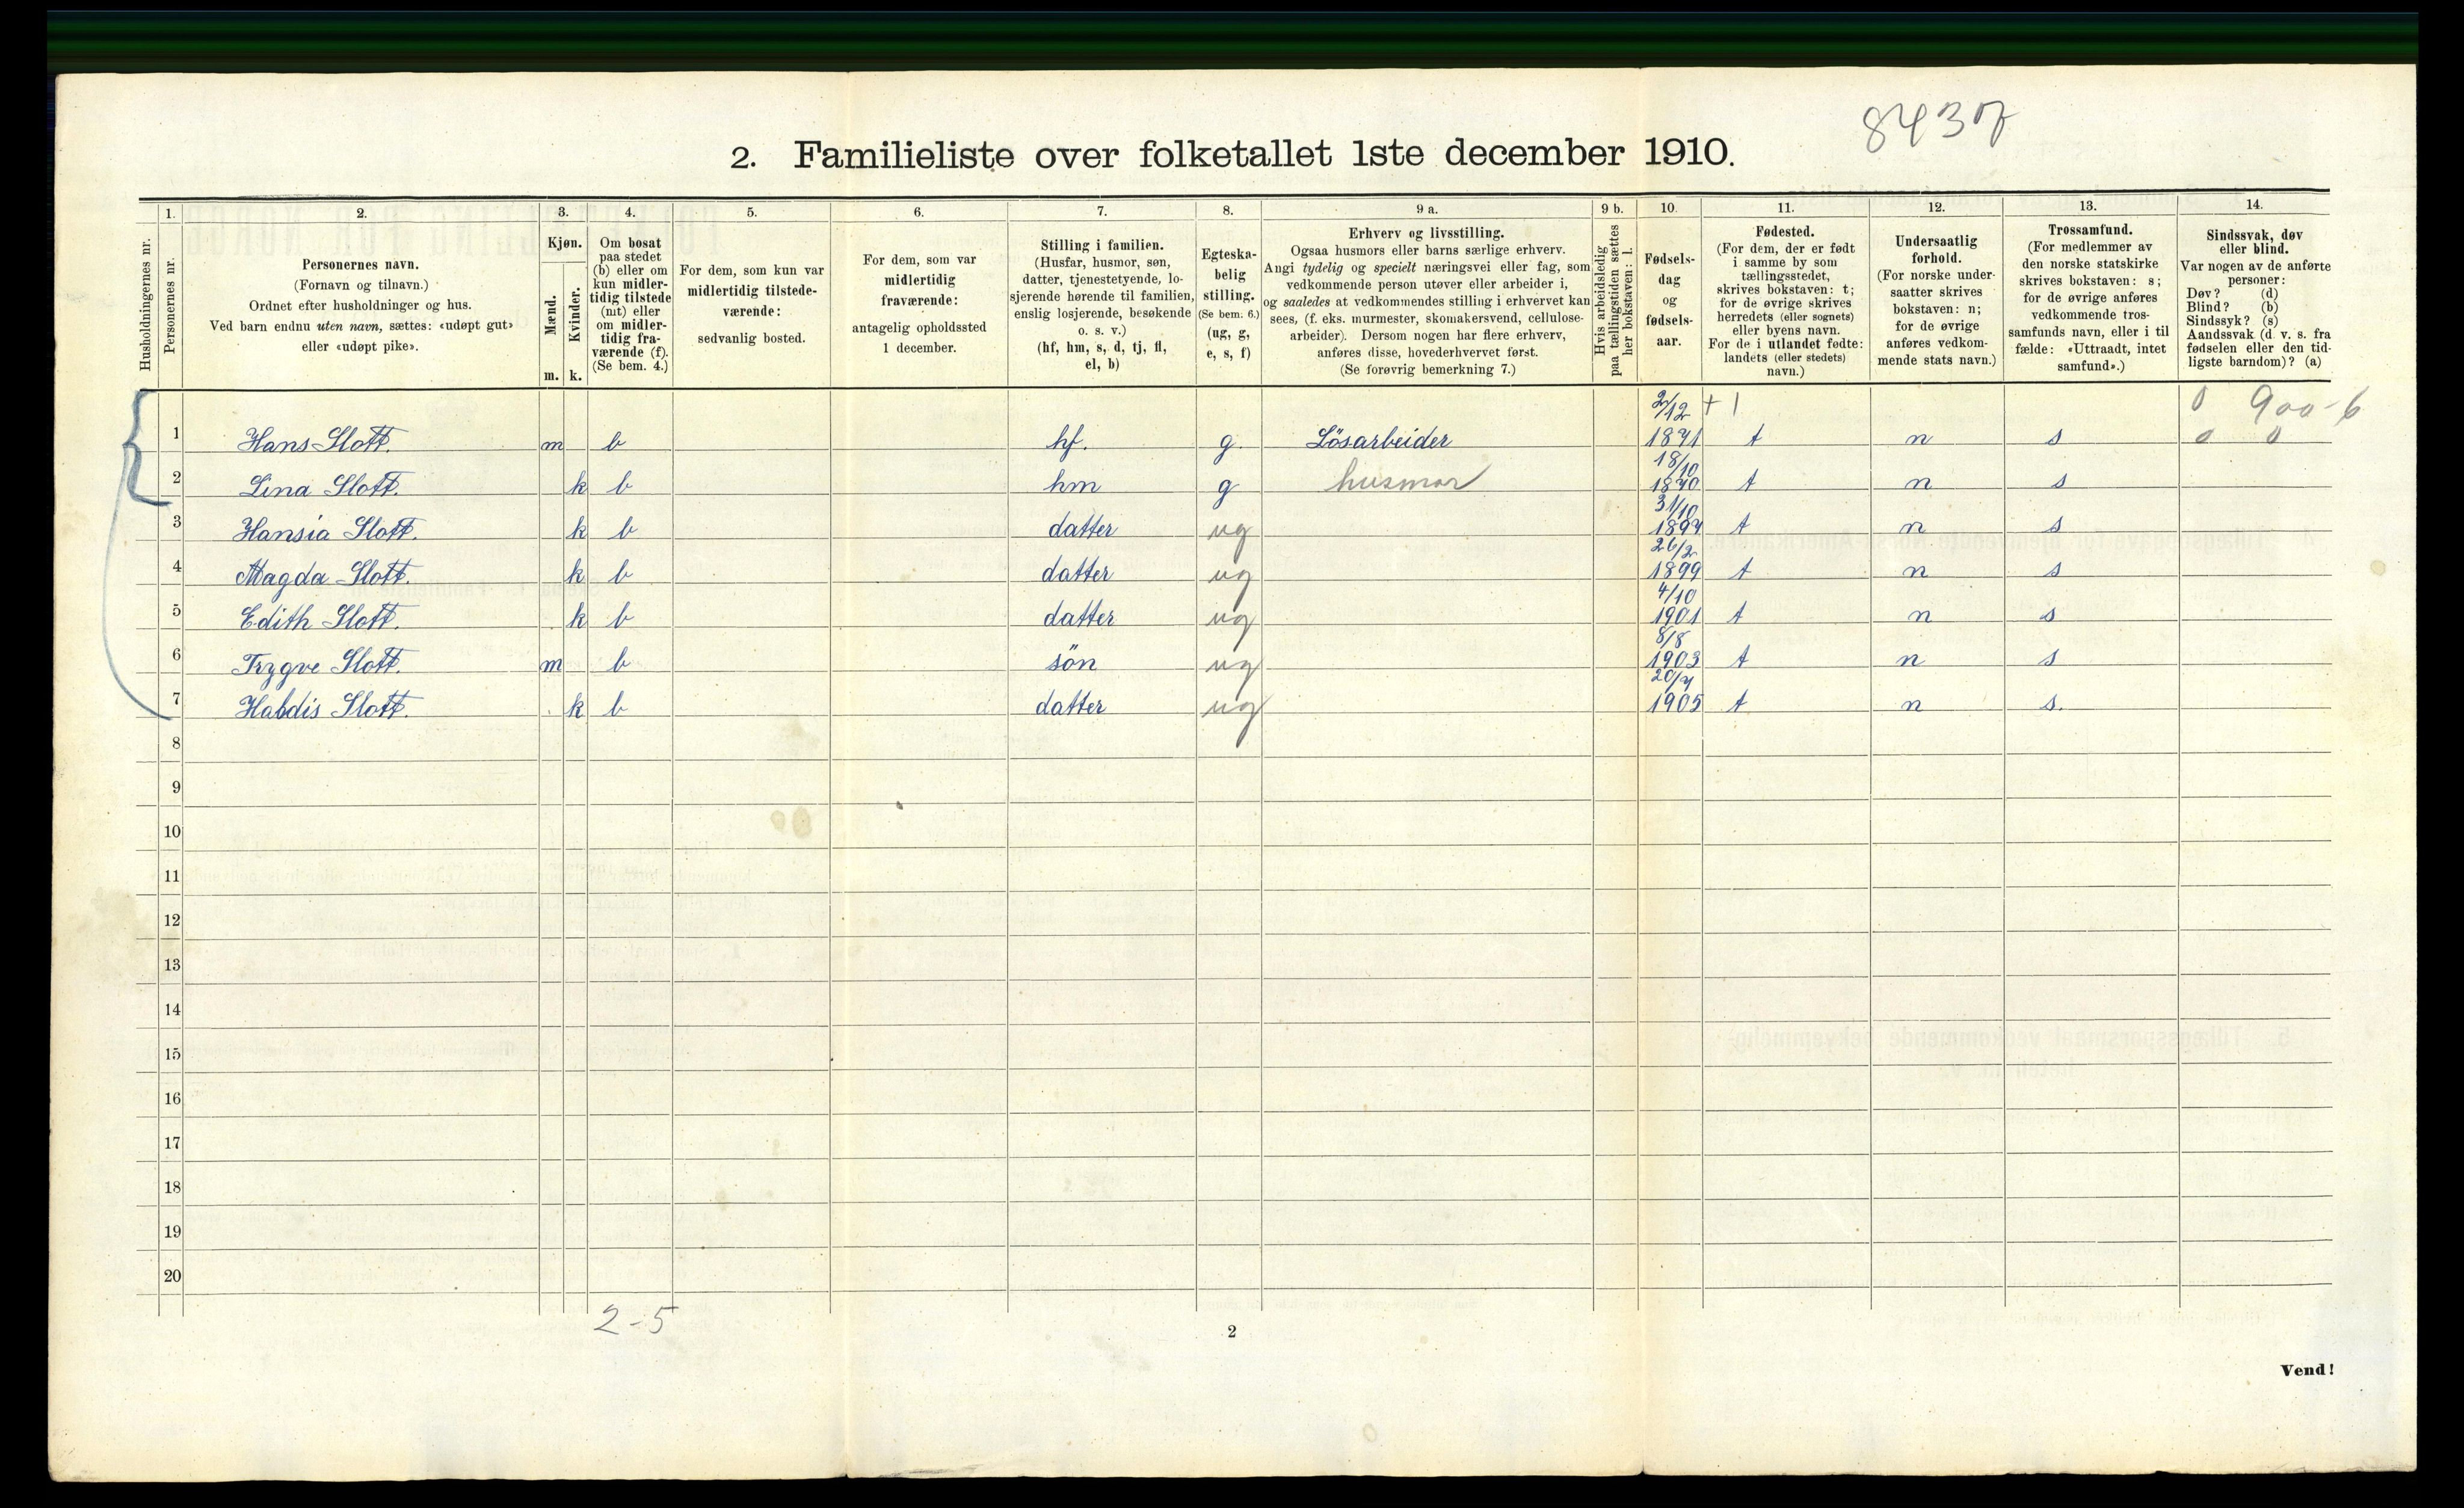 8437
2. Familieliste over folketallet 1ste december 1910.
1. 2. 3. 4. 5. 6. 7. 8. 9 a. 9 b. 10. 11. 12. 13. 14.
Husholdningernes nr.
Personernes nr.
Personernes navn.
(Fornavn og tilnavn.)
Ordnet efter husholdninger og hus.
Ved barn endnu uten navn, sættes: «udøpt gut»
eller «udøpt pike».
Kjøn.
Mænd.
Kvinder.
m. k.
Om bosat
paa stedet
(b) eller om
kun midler-
tidig tilstede
(mt) eller
om midler-
tidig fra-
værende (f).
(Se bem. 4.)
For dem, som kun var
midlertidig tilstede-
værende:
sedvanlig bosted.
For dem, som var
midlertidig
fraværende:
antagelig opholdssted
1 december.
Stilling i familien.
(Husfar, husmor, søn,
datter, tjenestetyende, lo-
sjerende hørende til familien,
enslig losjerende, besøkende
o. s. v.)
(hf, hm, s, d, tj, fl,
el, b)
Egteska-
belig
stilling.
(Se bem. 6.)
(ug, g,
e, s, f)
Erhverv og livsstilling.
Ogsaa husmors eller barns særlige erhverv.
Angi tydelig og specielt næringsvei eller fag, som
vedkommende person utøver eller arbeider i,
og saaledes at vedkommendes stilling i erhvervet kan
sees, (f. eks. murmester, skomakersvend, cellulose-
arbeider). Dersom nogen har flere erhverv,
anføres disse, hovederhvervet først.
(Se forøvrig bemerkning 7.)
Hvis arbeidsledig
paa tællingstiden sættes
her bokstaven: l.
Fødsels-
dag
og
fødsels-
aar.
Fødested.
(For dem, der er født
i samme by som
tællingsstedet,
skrives bokstaven: t;
for de øvrige skrives
herredets (eller sognets)
eller byens navn.
For de i utlandet fødte:
landets (eller stedets)
navn.)
Undersaatlig
forhold.
(For norske under-
saatter skrives
bokstaven: n;
for de øvrige
anføres vedkom-
mende stats navn.)
Trossamfund.
(For medlemmer av
den norske statskirke
skrives bokstaven: s;
for de øvrige anføres
vedkommende tros-
samfunds navn, eller i til
fælde: «Uttraadt, intet
samfund».)
Sindssvak, døv
eller blind.
Var nogen av de anførte
personer:
Døv? (d)
Blind? (b)
Sindssyk? (s)
Aandssvak (d. v. s. fra
fødselen eller den tid-
ligste barndom)? (a)
2/12 + 1 0 900-6
1 Hans Slott. m b hf. g. Lösarbeider 1871 t n s 0 0
18/10
2 Lina Slott. k b hm g husmor 1870 t n s
31/10
3 Hansia Slott. k b datter ug 1897 t n s
26/2
4 Magda Slott. k b datter ug 1899 t n s
4/10
5 Edith Slott. k b datter ug 1901 t n s
8/8
6 Trygve Slott. m b sön ug 1903 t n s
20/7
7 Habdis Slott. k b datter ug 1905 t n s.
8
9
10
11
12
13
14
15
16
17
18
19
20
2-5
2
Vend!